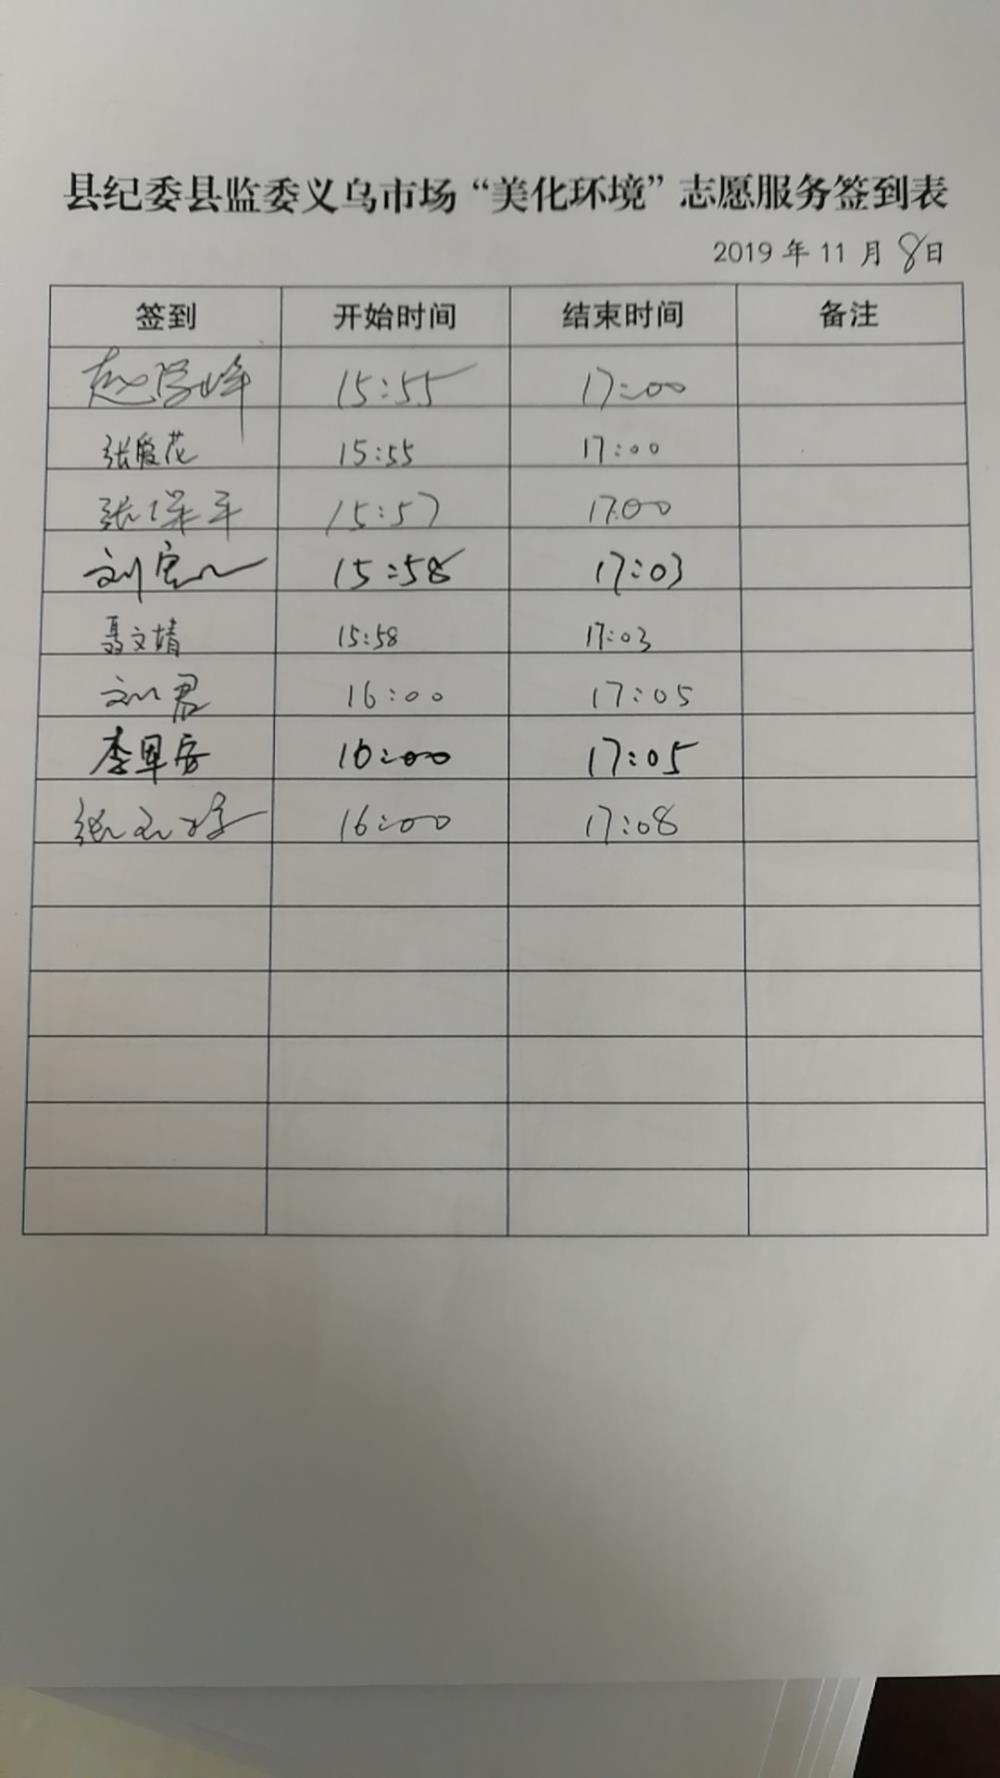 县纪委县监委义乌市场“美化环境”志愿服务签到表
2019 年 11 月 8日
签到 开始时间 结束时间 备注
赵学峰 15:55 17:00
张爱花 15:55 17:00
张保平 15:57 17:00
刘宏 15:58 17:03
聂文婧 15:58 17:03
刘君 16:00 17:05
李军房 16:00 17:05
张 16:00 17:08